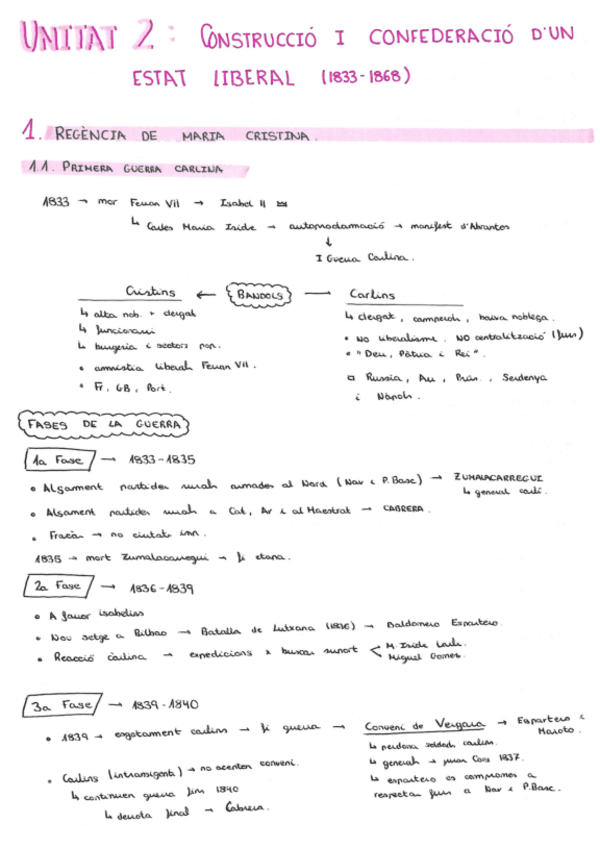 UNITAT 2: CONSTRUCCIÓ I CONFEDERACIÓ D'UN
ESTAT LIBERAL (1833-1868)
1. REGÈNCIA DE MARIA CRISTINA.
1.1. PRIMERA GUERRA CARLINA
1833 → mor Ferran VII → Isabel II
↳ Carles Maria Isidre → autoproclamació → manifest d'Abrantes
↓
I Guerra Carlina.
Cristins ← BANDOLS → Carlins
↳ alta nob. + clergat
↳ funcionari
↳ burgesia i sectors pop.
• amnistia liberal Ferran VII.
• Fr, GB, Port.
↳ clergat, camperols, baixa noblesa.
• No liberalisme. NO centralització (furs)
• "Deu, Pàtria i Rei".
▫ Russia, Au, Prús., Serdenya
i Nàpols.
FASES DE LA GUERRA
1a Fase → 1833-1835
• Alçament partides rurals armades al Nord (Nav i P.Basc) → ZUMALACARREGUI
↳ general carlí.
• Alçament partides rurals a Cat, Ar i al Maestrat → CABRERA.
• Fracàs → no ciutats imp.
1835 → mort Zumalacarregui → fi etapa.
2a Fase → 1836-1839
• A favor isabelins
• Nou setge a Bilbao → Batalla de Lutxana (1836) → Baldomero Espartero.
• Reacció carlina → expedicions x buscar suport
M. Isidre
Miguel Gomez.
3a Fase → 1839-1840
• 1839 → esgotament carlins → fi guerra → Conveni de Vergara → Espartero i
Maroto.
↳ perdona soldats carlins.
↳ generals → juren Cons 1837.
↳ espartero es compromes a
respectar furs a Nav i P.Basc.
• Carlins (intransigent) → no accepten conveni.
↳ continuen guerra fins 1840
↳ derrota final → Cabrera.